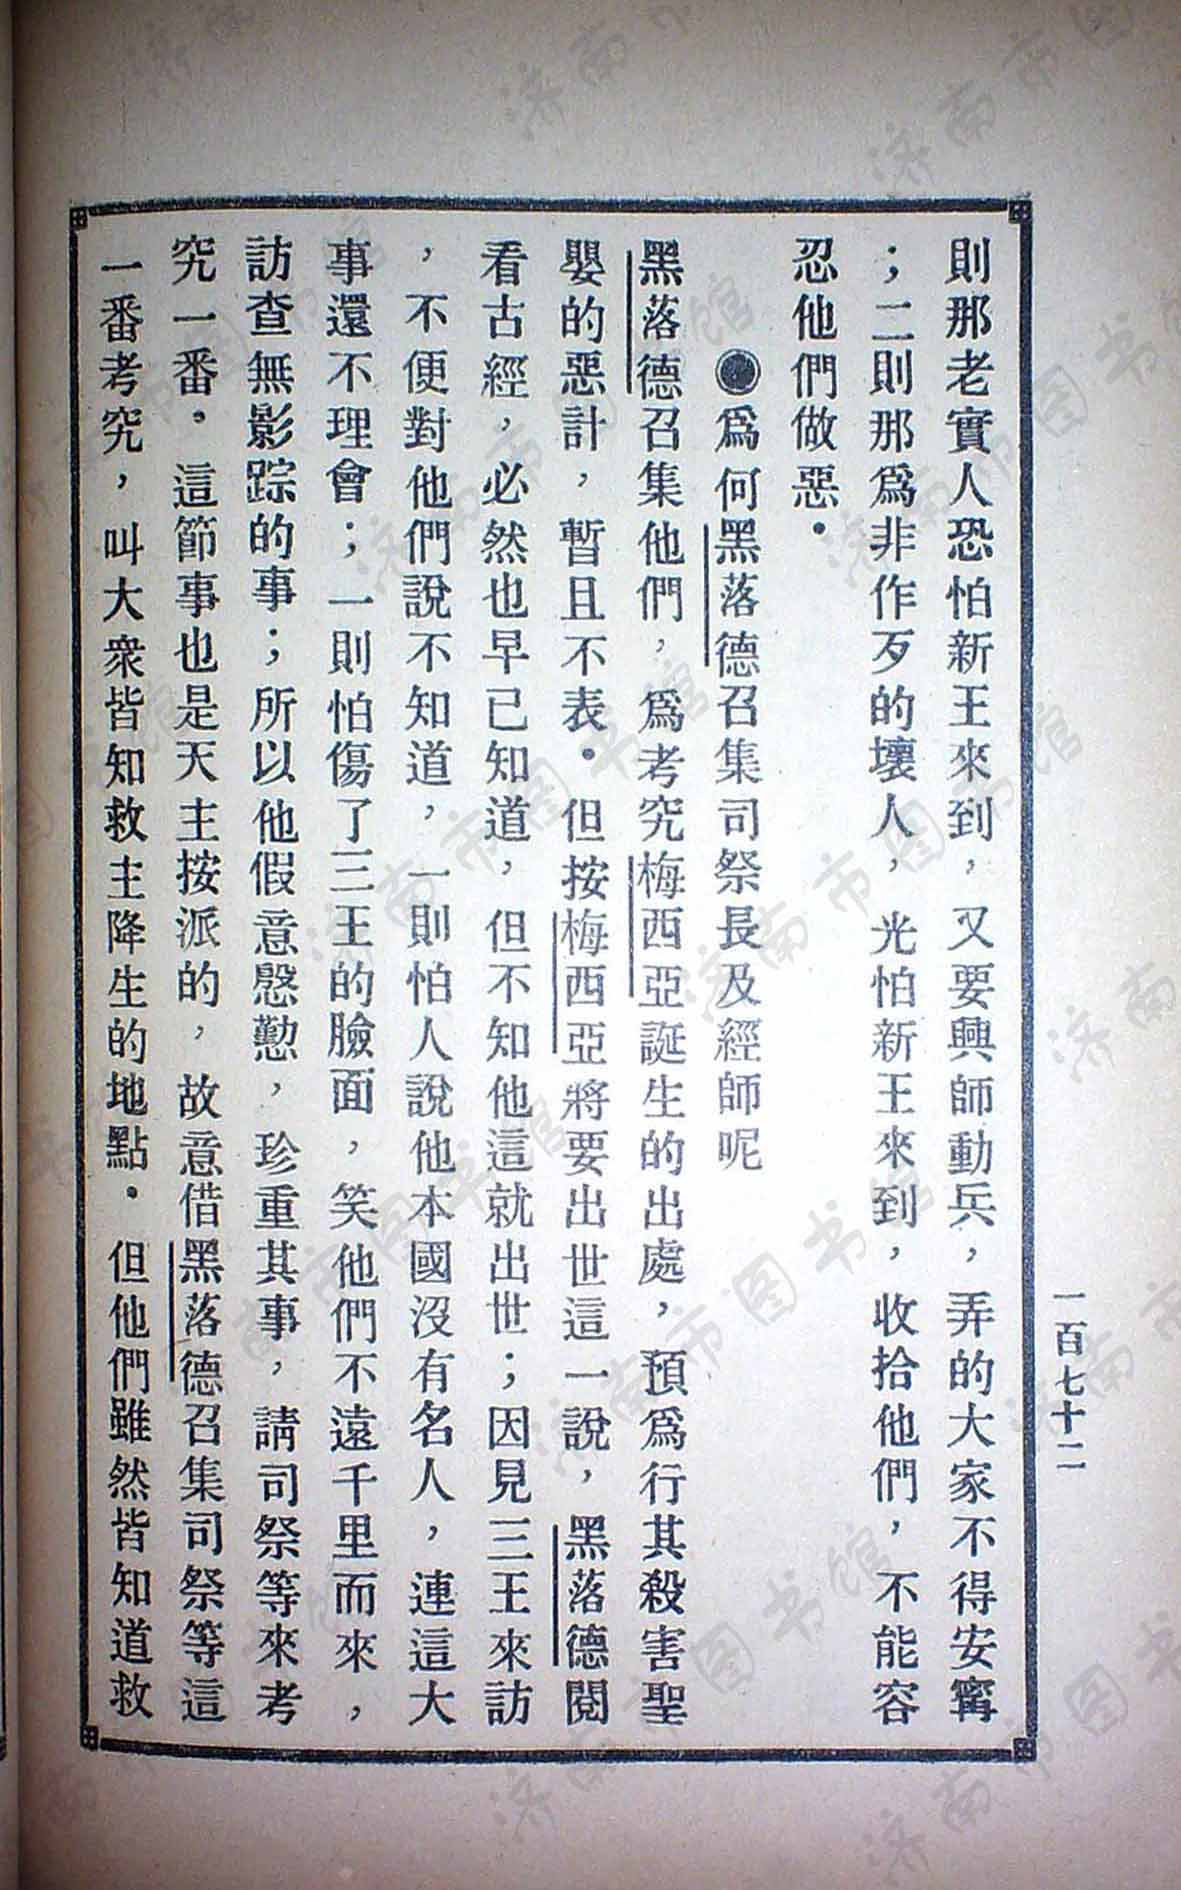 則那老實人恐怕新王來到，又要興師動兵，弄的大家不得安寗
；二則那爲非作歹的壞人，光怕新王來到，收拾他們，不能容
忍他們做惡．
◉爲何黑落德召集司祭長及經師呢
黑落德召集他們，爲考究梅西亞誕生的出處，預爲行其殺害聖
嬰的惡計，暫且不表．但按梅西亞將要出世這一說，黑落德閱
看古經，必然也早已知道，但不知他這就出世；因見三王來訪
，不便對他們說不知道，一則怕人說他本國沒有名人，連這大
事還不理會；一則怕傷了三王的臉面，笑他們不遠千里而來，
訪查無影踪的事；所以他假意慇懃，珍重其事，請司祭等來考
究一番．這節事也是天主按派的，故意借黑落德召集司祭等這
一番考究，叫大衆皆知救主降生的地點．但他們雖然皆知道救
一百七十二
济南市图书馆